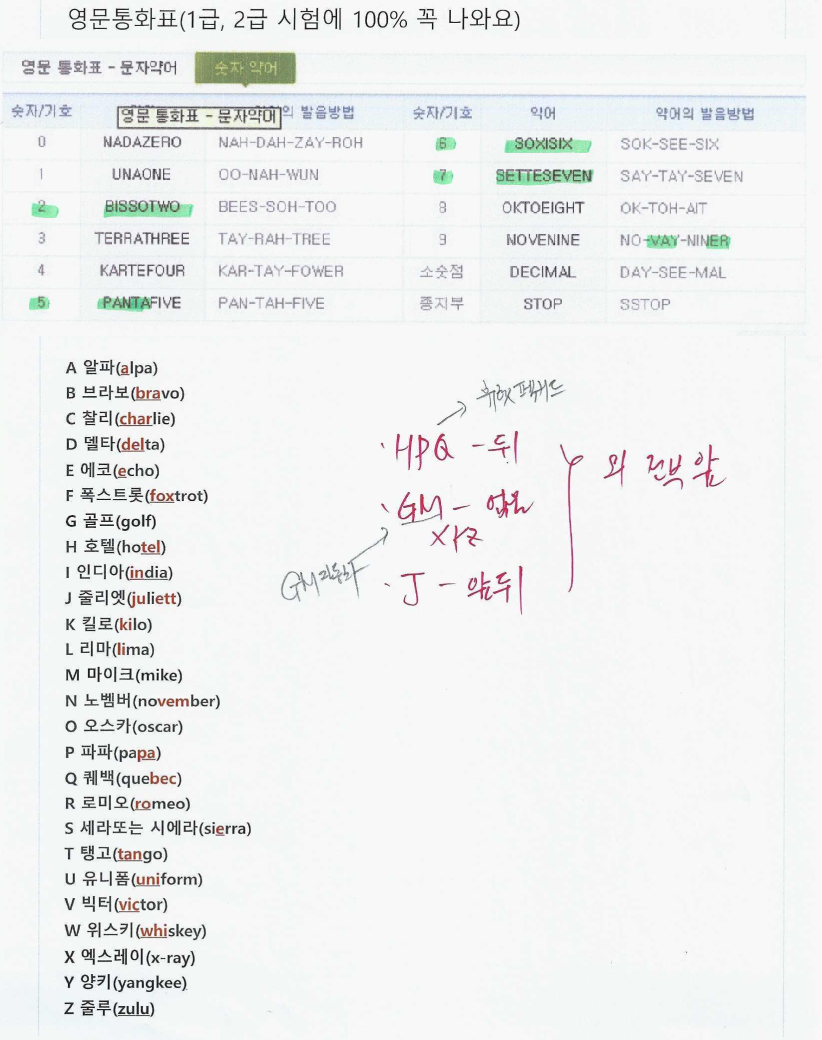 영문통화표(1급, 2급 시험에 100% 꼭 나와요)
영문 통화표 - 문자약어 숫자 약어
숫자/기호 의 발음방법 숫자/기호 약어 약어의 발음방법
영문 통화표 - 문자약어
0 NADAZERO NAH-DAH-ZAY-ROH 6 SOXISIX SOK-SEE-SIX
1 UNAONE OO-NAH-WUN 7 SETTESEVEN SAY-TAY-SEVEN
2 BISSOTWO BEES-SOH-TOO 8 OKTOEIGHT OK-TOH-AIT
3 TERRATHREE TAY-RAH-TREE 9 NOVENINE NO-VAY-NINER
4 KARTEFOUR KAR-TAY-FOWER 소숫점 DECIMAL DAY-SEE-MAL
5 PANTAFIVE PAN-TAH-FIVE 종지부 STOP SSTOP
A 알파(alpa)
B 브라보(bravo)
C 찰리(charlie)
D 델타(delta)
E 에코(echo)
F 폭스트롯(foxtrot)
G 골프(golf)
H 호텔(hotel)
I 인디아(india)
J 줄리엣(juliett)
K 킬로(kilo)
L 리마(lima)
M 마이크(mike)
N 노벰버(november)
O 오스카(oscar)
P 파파(papa)
Q 퀘백(quebec)
R 로미오(romeo)
S 세라또는 시에라(sierra)
T 탱고(tango)
U 유니폼(uniform)
V 빅터(victor)
W 위스키(whiskey)
X 엑스레이(x-ray)
Y 양키(yangkee)
Z 줄루(zulu)
· HPQ - 뒤
· GM - 없음
XYZ
· J - 앞뒤
외 전부 앞